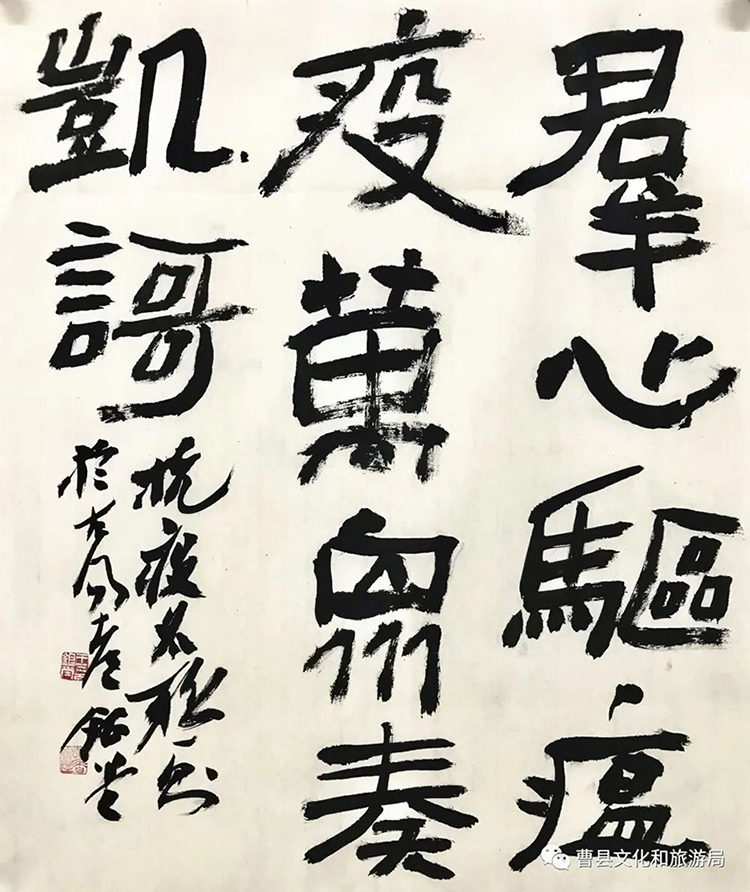 羣心驅瘟
疫萬眾奏
凱謌
抗疫必勝
於古
曹县文化和旅游局